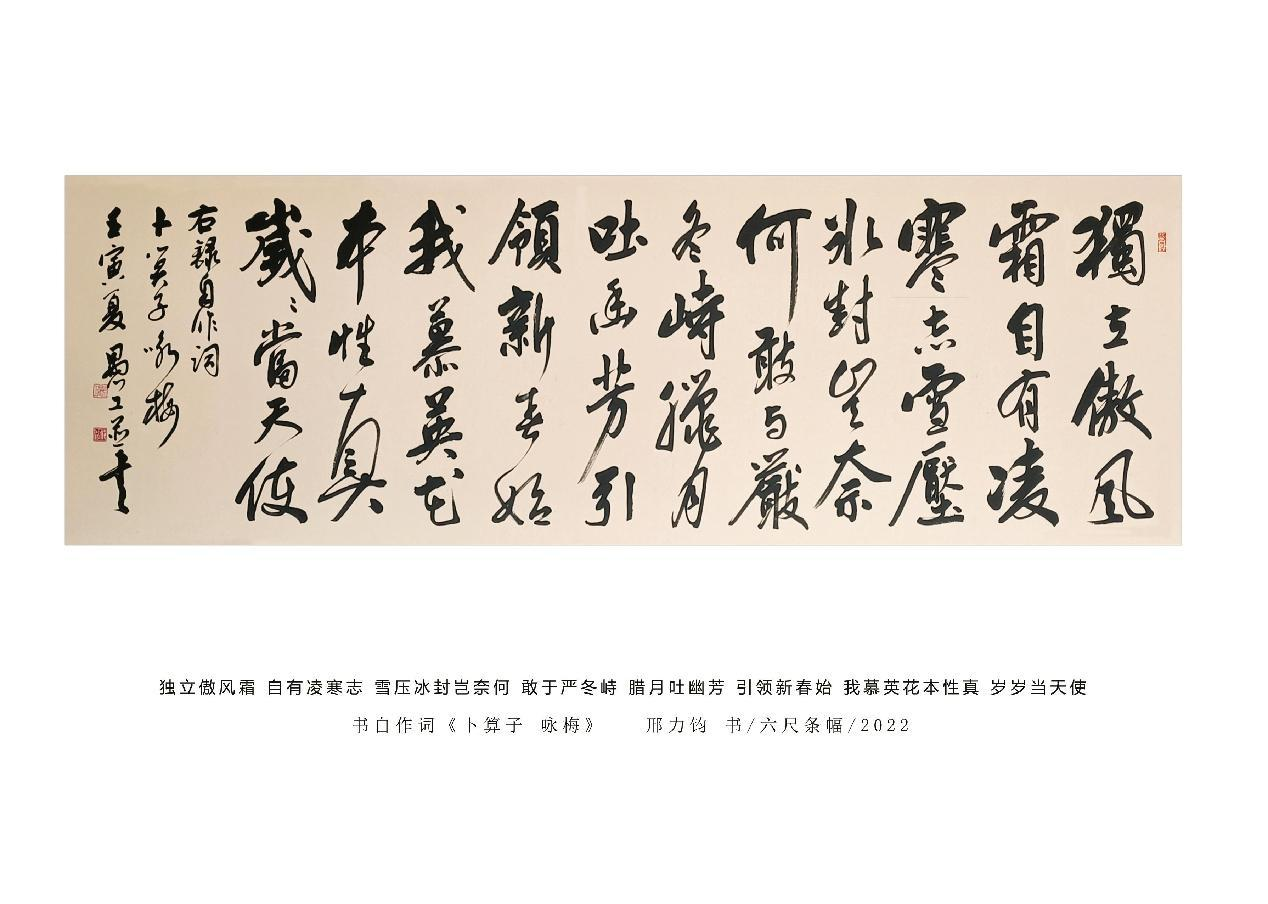 獨立傲風
霜自有凌
寒志雪壓
氷封岂奈
何敢与嚴
冬峙臘月
吐幽芳引
領新春始
我慕英花
本性真
歲〻當天使
右録自作词
卜算子咏梅
壬寅夏愚公并书
独立傲风霜 自有凌寒志 雪压冰封岂奈何 敢于严冬峙 腊月吐幽芳 引领新春始 我慕英花本性真 岁岁当天使
书自作词《卜算子 咏梅》 邢力钧 书/六尺条幅/2022